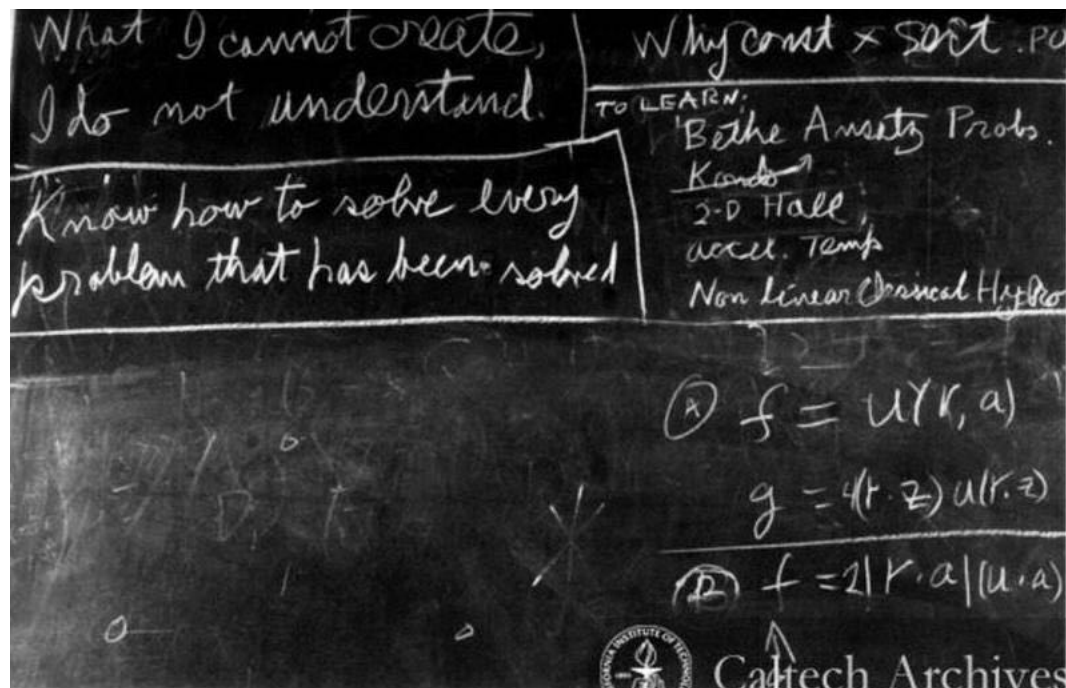 What I cannot create,
I do not understand.
Know how to solve every
problem that has been solved
Why const × sort . PO
TO LEARN:
Bethe Ansatz Probs.
Kondo
2-D Hall
accel. Temp
Non linear Classical Hydro
(A) f = u(r, a)
g = 4(r·z) u(r.z)
f = 2|r·a|(u·a)
CALIFORNIA INSTITUTE OF TECHNOLOGY
Caltech Archives